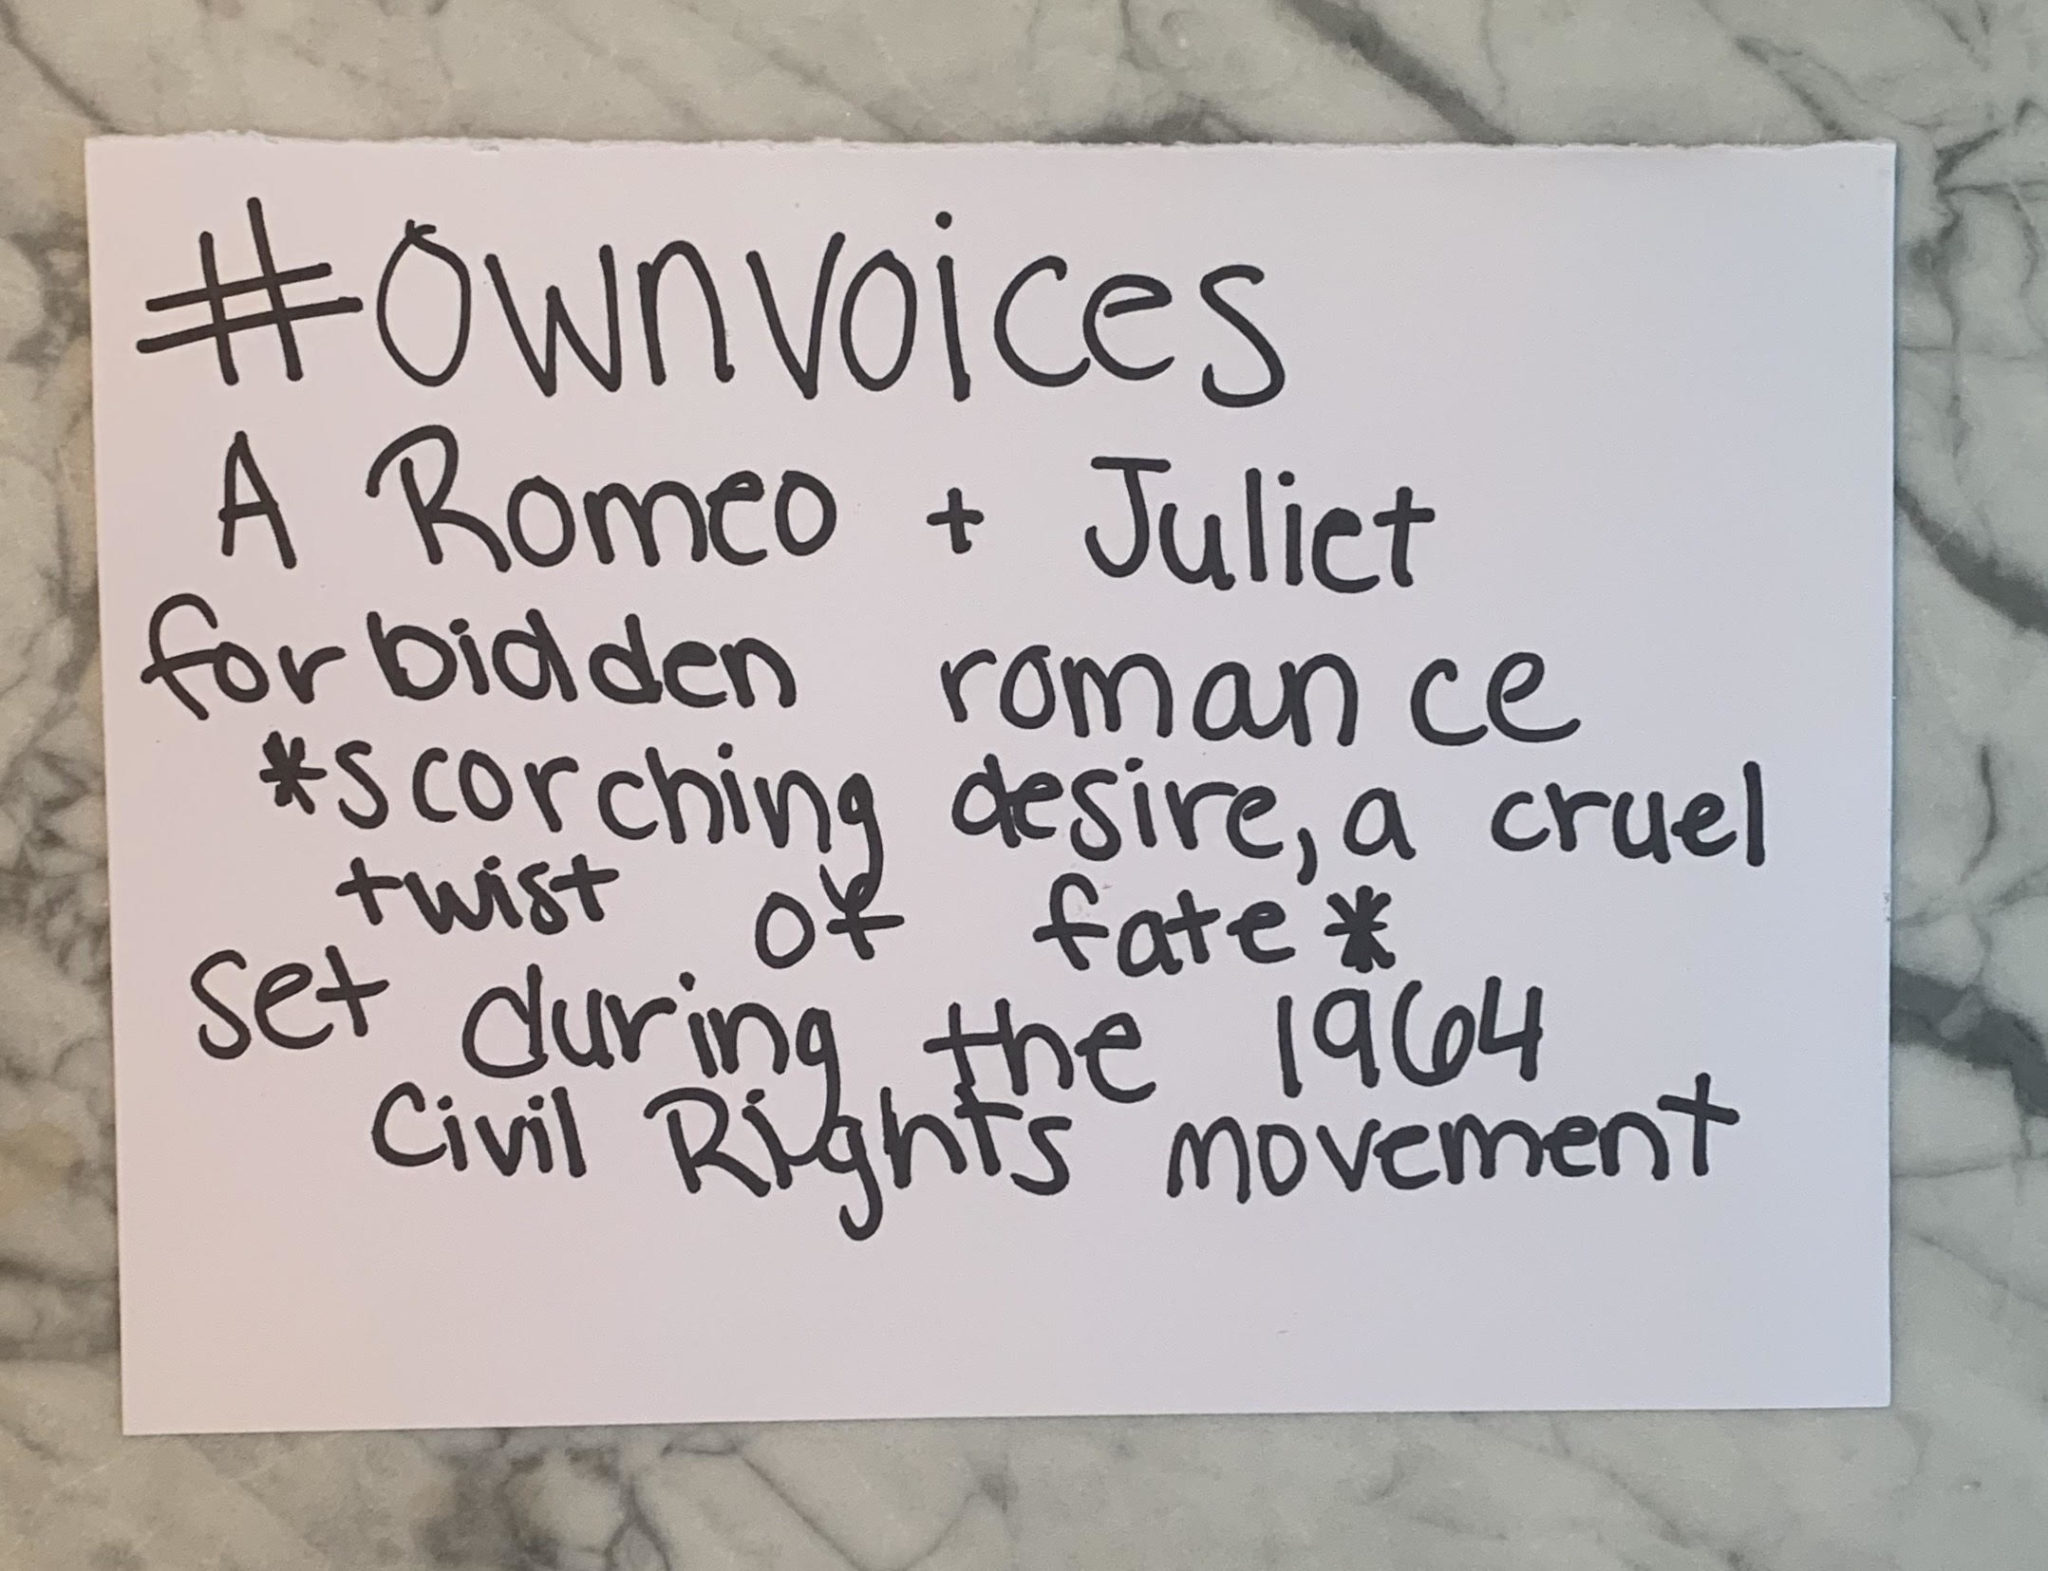 #Ownvoices
A Romeo + Juliet
forbidden romance
*scorching desire, a cruel
twist of fate*
set during the 1964
Civil Rights movement